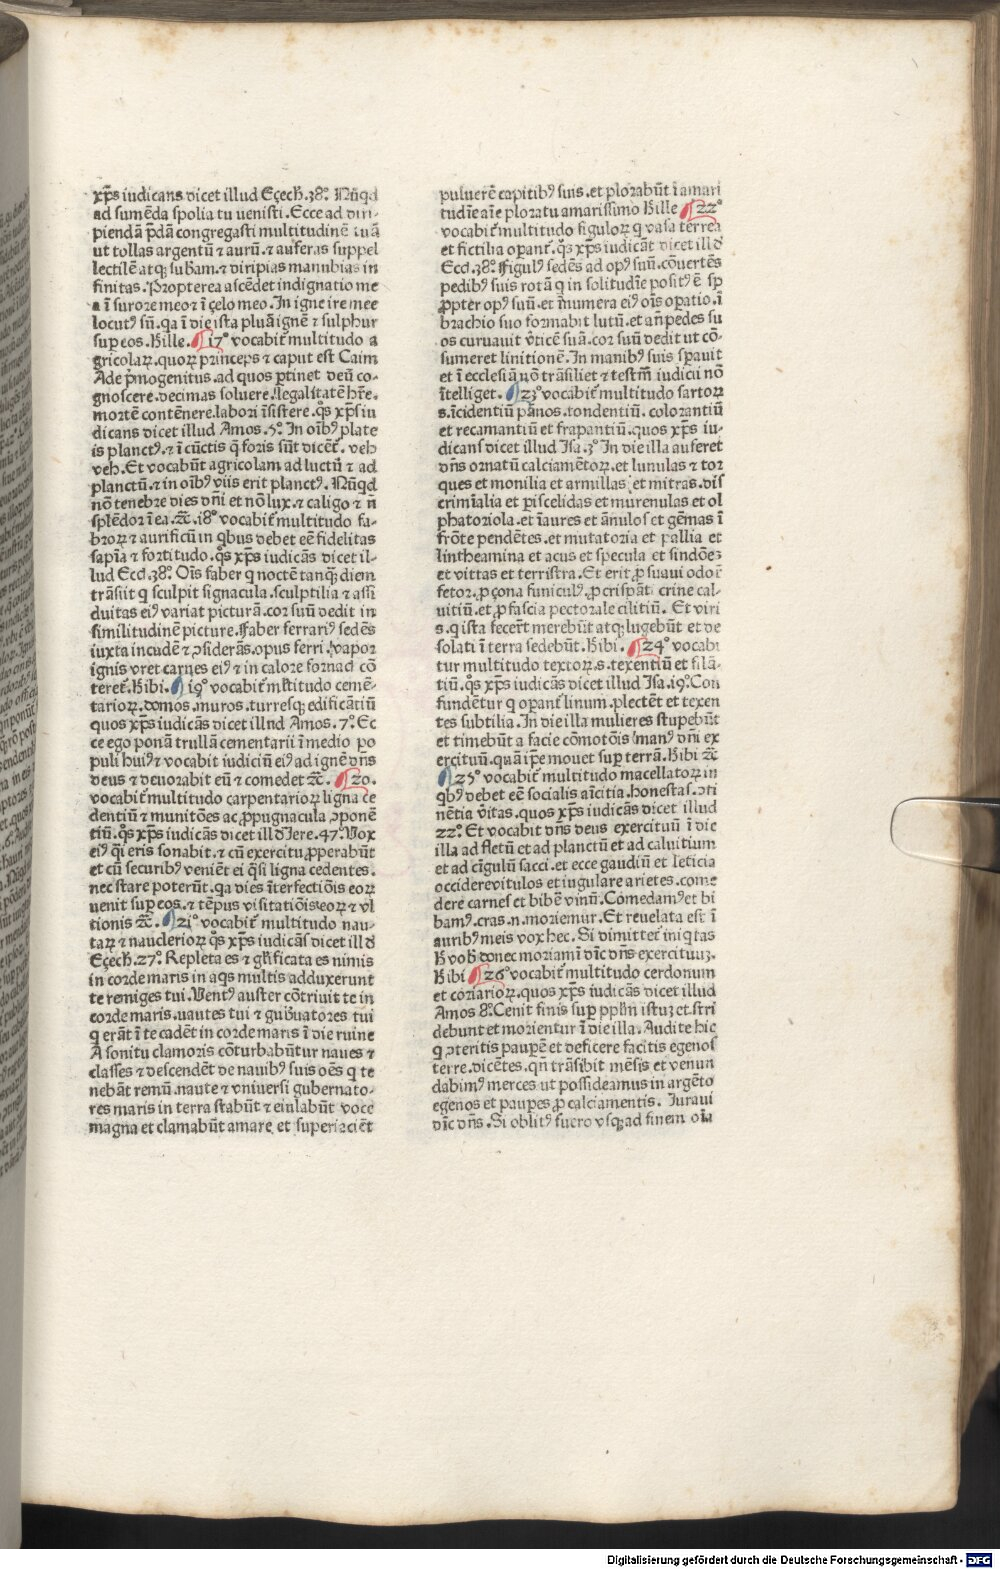 xp̄s iudicans dicet illud Eçech̄.38.° Nūqd
ad sumēda spolia tu uenisti.Ecce ad diri-
piendā p̄dā congregasti multitudinē tuā
ut tollas argentū ⁊ aurū.⁊ auferas suppel
lectilē atq; subam.⁊ diripias manubias in
finitas.Propterea ascēdet indignatio me
a ī furore meo ⁊ ī çelo meo.In igne ire mee
locut⁹ sū.qa ī die ista pluā ignē ⁊ sulphur
sup̄ eos.Bille.¶17° vocabit̄ multitudo a
gricolaꝝ.quoꝝ princeps ⁊ caput est Caim
Ade p̄mogenitus.ad quos ꝑtinet deū co-
gnoscere.decimas soluere.legalitatē hr̄e.
mortē contēnere.labori īsistere.q̄s xp̄s iu
dicans dicet illud Amos.5.° In oīb⁹ plate
is planct⁹.⁊ ī cūctis q̄ foris sūt dicēt. veh
veh.Et vocabūt agricolam ad luctū ⁊ ad
planctū.⁊ in oīb⁹ viis erit planct⁹. Nūqd
nō tenebre dies dn̄i et nō lux.⁊ caligo ⁊ n̄
splēdor ī ea.⁊c̄.18° vocabit̄ multitudo fa-
broꝝ ⁊ aurificū in qbus debet eē fidelitas
sapīa ⁊ fortitudo.q̄s xp̄s iudicās dicet il-
lud Eccl.38.° Oīs faber q noctē tanq̄ diem
trāsiit q sculpit signacula.sculptilia ⁊ assi
duitas ei⁹ variat picturā.cor suū dedit in
similitudinē picture.Faber ferrari⁹ sedēs
iuxta incudē ⁊ ꝯsiderās.opus ferri.vapor
ignis vret carnes ei⁹ ⁊ in calore fornacī cō
teret̄.Bibi.¶19° vocabit̄ ml̄titudo cemē-
tarioꝝ.domos.muros.turresq; edificātiū
quos xp̄s iudicās dicet illnd Amos. 7.° Ec
ce ego ponā trullā cementarii ī medio po
puli hui⁹ ⁊ vocabit iudiciū ei⁹ ad ignē dn̄s
deus ⁊ deuorabit eū ⁊ comedet ⁊c̄. ¶20.
vocabit̄ multitudo carpentarioꝝ ligna ce
dentiū ⁊ munitōes ac ꝓpugnacula ꝯponē
tiū.q̄s xp̄s iudicās dicet ill đ Jere.47.° Vox
ei⁹ q̄i eris sonabit.⁊ cū exercitu ꝓperabūt
et cū securib⁹ veniēt ei q̄si ligna cedentes.
nec stare poterūt.qa dies īterfectiōis eoꝝ
uenit sup̄ eos.⁊ tēpus visitatiōis eoꝝ ⁊ vl
tionis ⁊c̄.¶21° vocabit̄ multitudo nau-
taꝝ ⁊ nauclerioꝝ q̄s xp̄s iudicās dicet ill đ
Eçech̄.27.° Repleta es ⁊ gl̄ificata es nimis
in corde maris in aqs multis adduxerunt
te remiges tui.Vent⁹ auster cōtriuit te in
corde maris.nautes tui ⁊ gub̄natores tui
q erāt ī te cadēt in corde maris ī die ruine
A sonitu clamoris cōturbabūtur naues ⁊
classes ⁊ descendēt de nauib⁹ suis oēs q te
nebāt remū.naute ⁊ vniuersi gubernato-
res maris in terra stabūt ⁊ eiulabūt voce
magna et clamabūt amare et superiaciēt
puluerē capitib⁹ suis.et plorabūt ī amari
tudīe aīe ploratu amarissimo Bille ¶22°
vocabit̄ multitudo figuloꝝ q vasa terrea
et fictilia oꝑant̄.q̄s xp̄s iudicās dicet ill đ
Eccl.38.° Figul⁹ sedēs ad op⁹ suū.cōuertēs
pedib⁹ suis rotā q in solitudīe posit⁹ ē sꝑ
ꝓpter op⁹ suū.et īnumera ei⁹ oīs oꝑatio.ī
brachio suo formabit lutū.et an̄ pedes su
os curuauit v̄ticē suā.cor suū dedit ut cō-
sumeret linitionē.In manib⁹ suis sꝑauit
et ī ecclesiā nō trāsiliet ⁊ testm̄ iudicii nō
ītelliget.¶23° vocabit̄ multitudo sartoꝝ
s.īcidentiū pānos.tondentiū. colorantiū
et recamantiū et frapantiū.quos xp̄s iu-
dicans̄ dicet illud Isa.3.° In die illa auferet
dn̄s ornatū calciamētoꝝ.et lunulas ⁊ tor
ques et monilia et armillas et mitras.dis
crimīalia et ꝑiscelidas et murenulas et ol
phatoriola.et īaures et ānulos et gēmas ī
frōte pendētes.et mutatoria et pallia et
lintheamina et acus et specula et sindōes
et vittas et terristra.Et erit ꝓ suaui odoī
fetor.ꝓ çona funicul⁹.ꝓ crispāti crine cal-
uitiū.et ꝓ fascia pectorale cilitiū. Et viri
s.q ista fecer̄t merebūt atq; lugebūt et de
solati ī terra sedebūt.Bibi.¶24° vocabi
tur multitudo textoꝝ.s.texentiū et filā-
tiū.q̄s xp̄s iudicās dicet illud Isa.19.° Con
fundētur q oꝑant̄ linum.plectēt et texen
tes subtilia.In die illa mulieres stupebūt
et timebūt a facie cōmotōis man⁹ dn̄i ex
ercituū.quā ip̄e mouet sup̄ terrā.Bibi ⁊c̄
¶25° vocabit̄ multitudo macellatoꝝ in
qb⁹ debet eē socialis aīcitia.honestas.ꝯti
nētia v̄itas.quos xp̄s iudicās dicet illud
22.° Et vocabit dn̄s deus exercituū ī die
illa ad fletū et ad planctū et ad caluitium
et ad cīgulū sacci.et ecce gaudiū et leticia
occidere vitulos et iugulare arietes.come
dere carnes et bibē vinū.Comedam⁹ et bi
bam⁹.cras.n.moriemur.Et reuelata est ī
aurib⁹ meis vox hec.Si dimittet̄ iniqtas
H vob̄ donec moriamī dīc dn̄s exercituū.
Bibi ¶26° vocabit̄ multitudo cerdonum
et coriarioꝝ.quos xp̄s iudicās dicet illud
Amos 8.° Cenit finis sup̄ pplm̄ istuȝ et stri
debunt et morientur ī die illa. Audite hic
q ꝯteritis pauꝑē et deficere facitis egenos
terre.dicētes.qn̄ trāsibit mēsis et venun
dabim⁹ merces ut possideamus in argēto
egenos et pauꝑes ꝓ calciamentis. Iurauī
dīc dn̄s.Si oblit⁹ fuero vsq; ad finem oīa
Digitalisierung gefördert durch die Deutsche Forschungsgemeinschaft - DFG